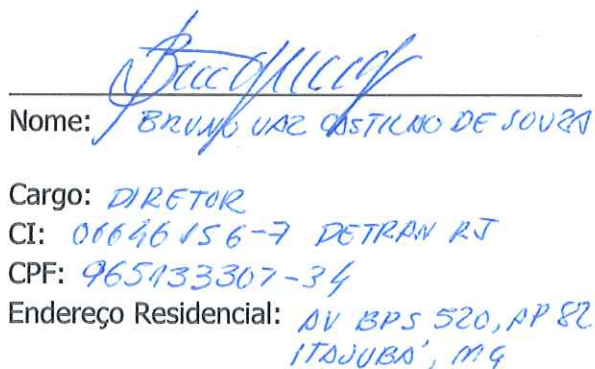 Nome: BRUNO VAZ CASTILHO DE SOUZA
Cargo: DIRETOR
CI: 06646156-7 DETRAN RJ
CPF: 965133307-34
Endereço Residencial: AV BPS 520, AP 82
ITAJUBÁ, MG